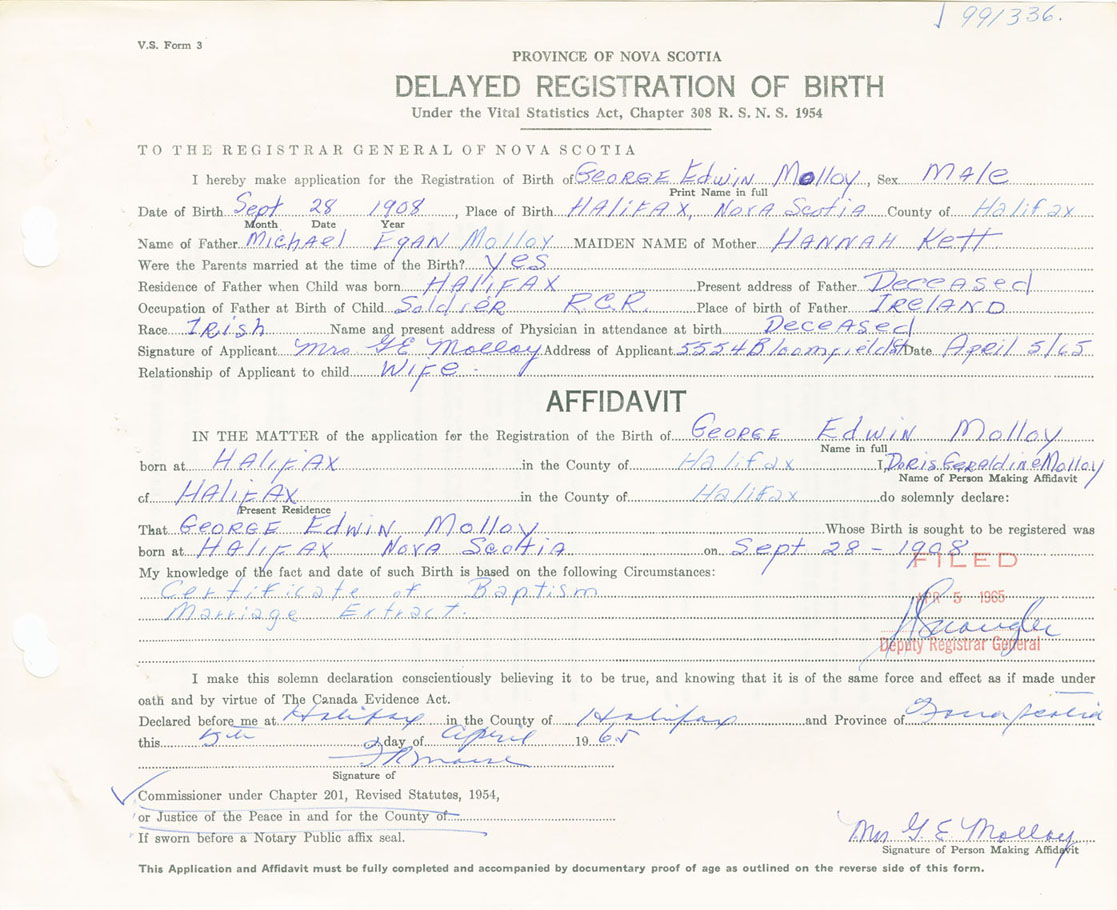 991336.
V.S. Form 3
PROVINCE OF NOVA SCOTIA
DELAYED REGISTRATION OF BIRTH
Under the Vital Statistics Act, Chapter 308 R. S. N. S. 1954
TO THE REGISTRAR GENERAL OF NOVA SCOTIA
I hereby make application for the Registration of Birth of George Edwin Molloy, Sex Male
Print Name in full
Date of Birth Sept 28 1908, Place of Birth Halifax, Nova Scotia County of Halifax
Month Date Year
Name of Father Michael Egan Molloy MAIDEN NAME of Mother Hannah Kett
Were the Parents married at the time of the Birth? Yes
Residence of Father when Child was born Halifax Present address of Father Deceased
Occupation of Father at Birth of Child Soldier R.C.R. Place of birth of Father Ireland
Race Irish Name and present address of Physician in attendance at birth Deceased
Signature of Applicant Mrs G E Molloy Address of Applicant 5554 Bloomfield St Date April 5/65
Relationship of Applicant to child Wife.
AFFIDAVIT
IN THE MATTER of the application for the Registration of the Birth of George Edwin Molloy
Name in full
born at Halifax in the County of Halifax I, Doris Geraldine Molloy
Name of Person Making Affidavit
of Halifax in the County of Halifax do solemnly declare:
Present Residence
That George Edwin Molloy Whose Birth is sought to be registered was
born at Halifax Nova Scotia on Sept 28 - 1908
FILED
My knowledge of the fact and date of such Birth is based on the following Circumstances:
Certificate of Baptism
APR 5 1965
Marriage Extract.
Deputy Registrar General
I make this solemn declaration conscientiously believing it to be true, and knowing that it is of the same force and effect as if made under
oath and by virtue of The Canada Evidence Act.
Declared before me at Halifax in the County of Halifax and Province of Nova Scotia
this 5th day of April 1965
Signature of
Commissioner under Chapter 201, Revised Statutes, 1954,
or Justice of the Peace in and for the County of
If sworn before a Notary Public affix seal.
Mrs G. E. Molloy
Signature of Person Making Affidavit
This Application and Affidavit must be fully completed and accompanied by documentary proof of age as outlined on the reverse side of this form.